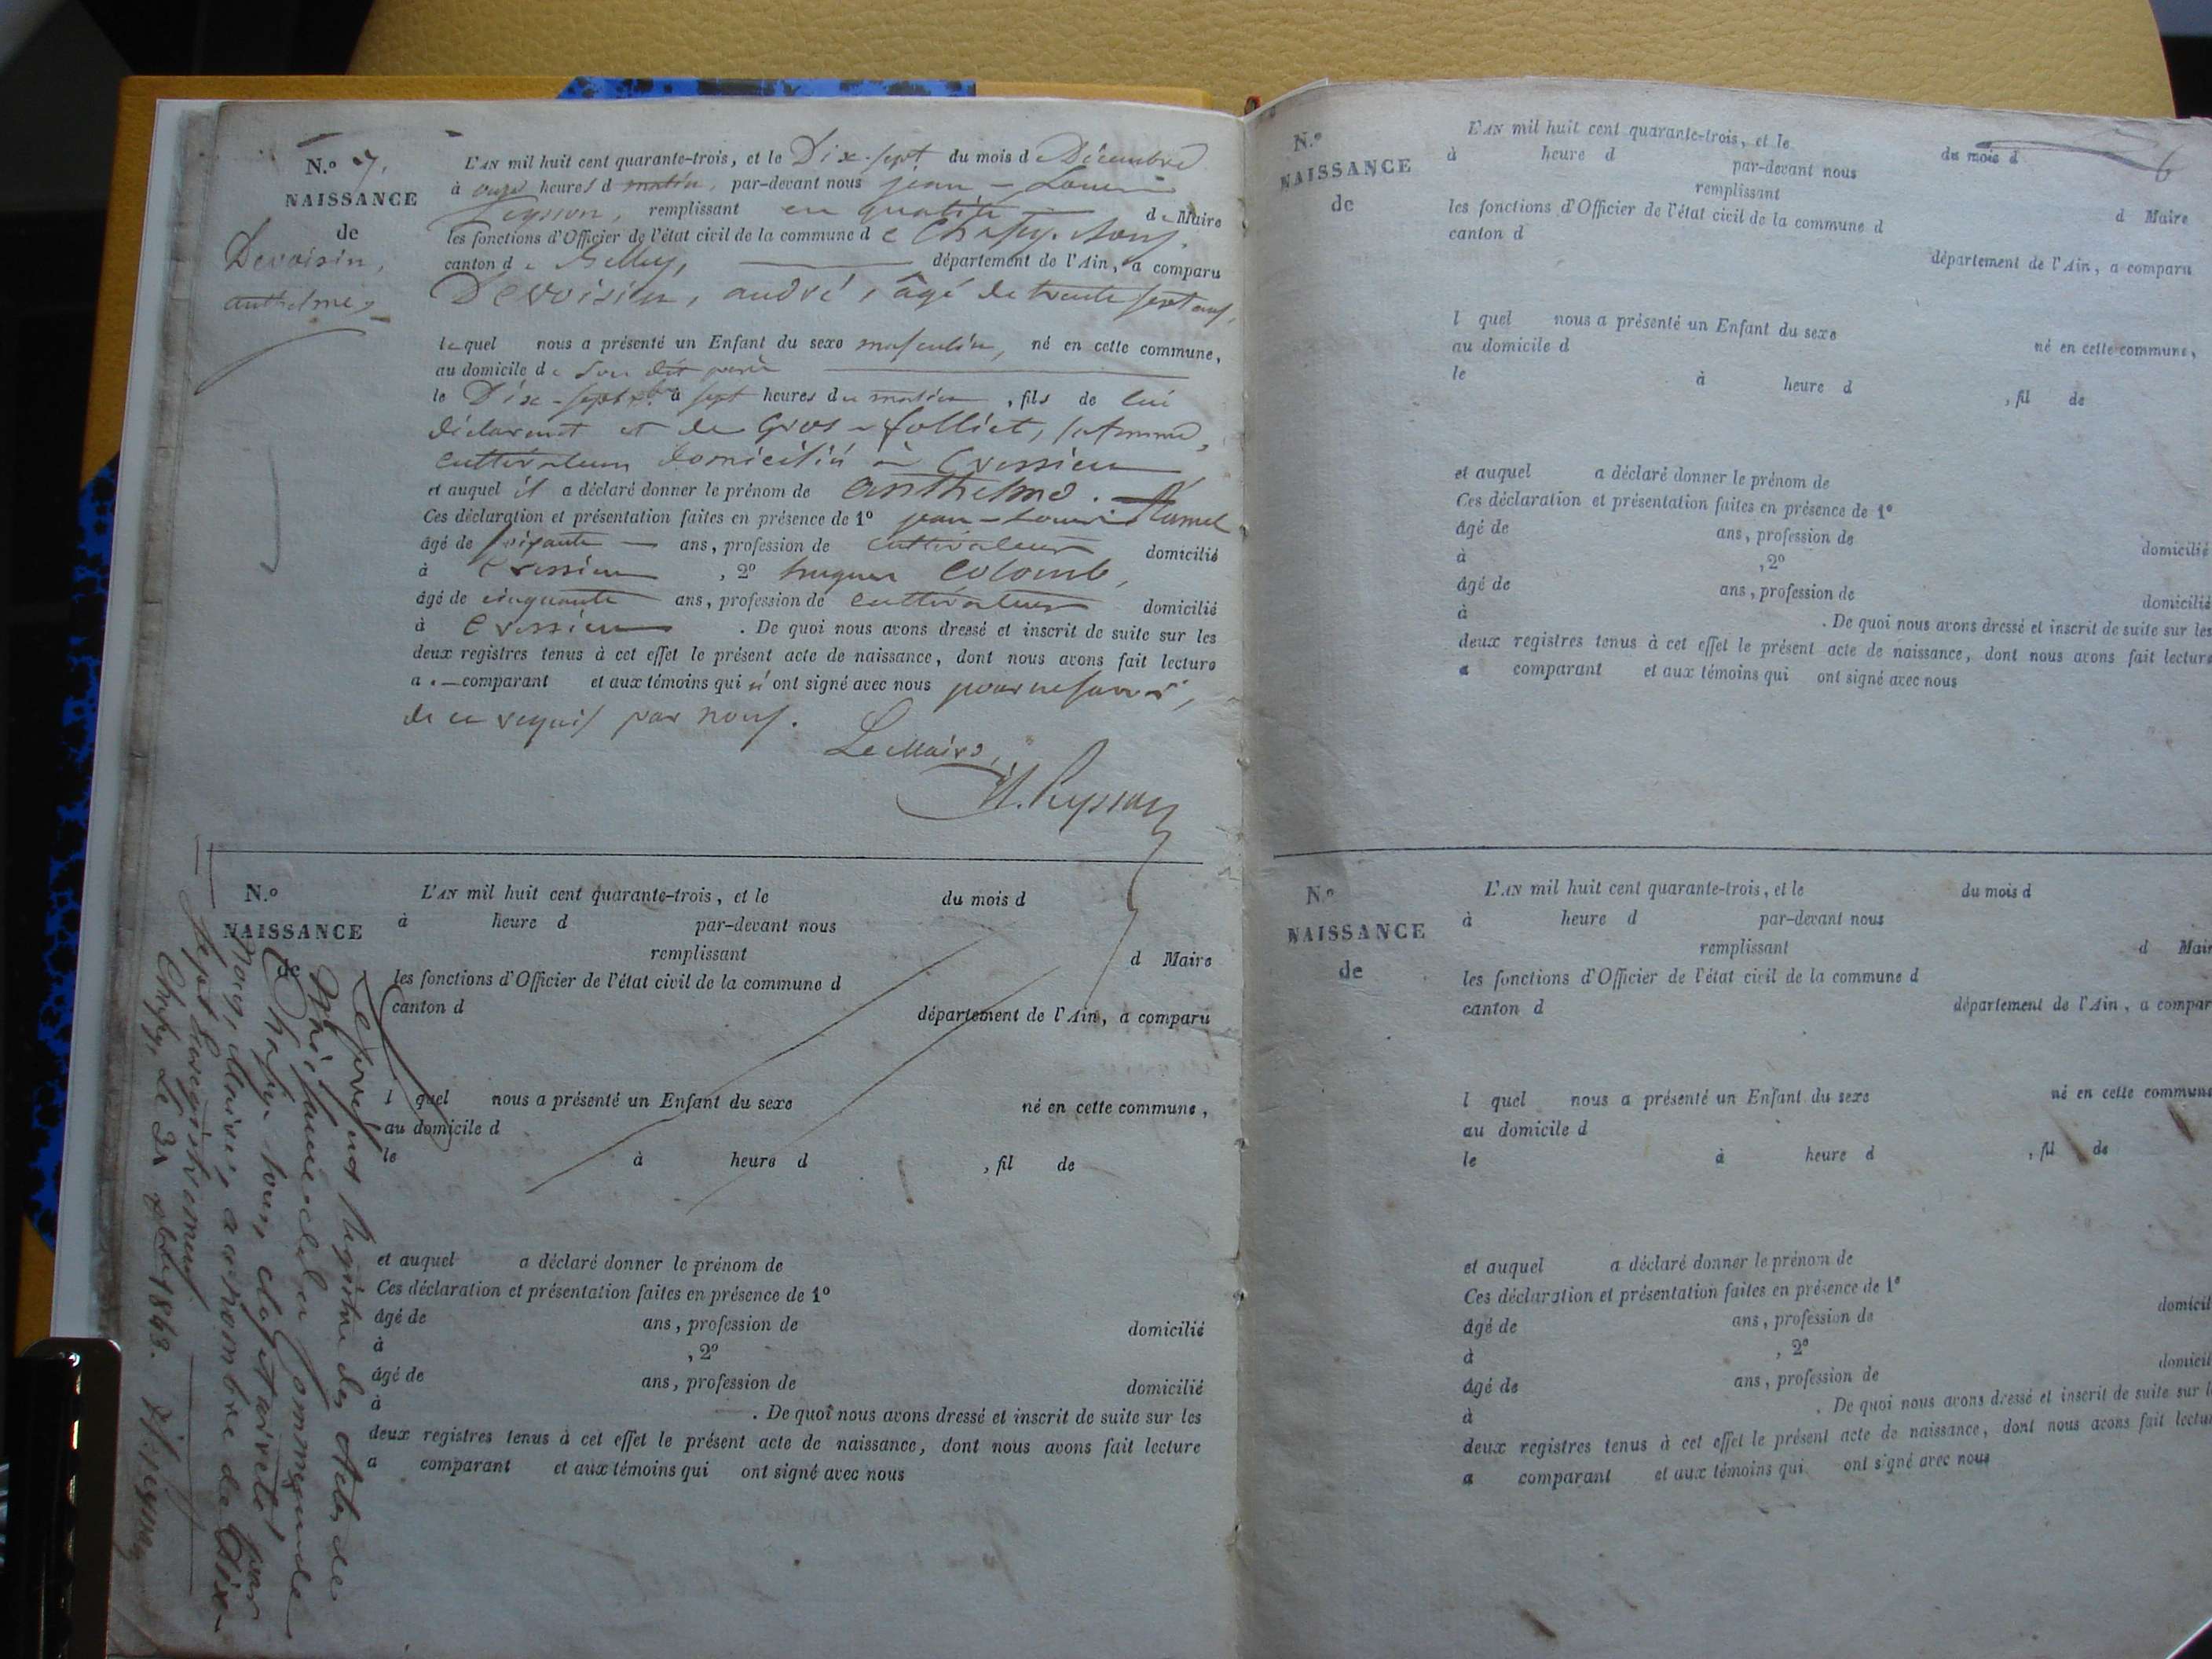 N.º 7.
NAISSANCE
de
Devoisin,
anthelme,
L'AN mil huit cent quarante-trois, et le Dix-sept du mois de Décembre
à onze heures d matin, par-devant nous jean-Louis
Peysson, remplissant en qualité de Maire
les fonctions d'Officier de l'état civil de la commune de
canton de Belley, département de l'Ain, a comparu
Devoisin, andré, âgé de trente sept ans,
lequel nous a présenté un Enfant du sexe masculin, né en cette commune,
au domicile de son dit père
le Dix-sept à sept heures du matin, fils de lui
déclarant et de Gros-folliet, sa femme,
cultivateurs domiciliés à Cressieu
et auquel il a déclaré donner le prénom de anthelme.
Ces déclaration et présentation faites en présence de 1º jean-Louis
âgé de soixante ans, profession de cultivateur domicilié
à Cressieu, 2º hugues Colomb,
âgé de cinquante ans, profession de cultivateur domicilié
à Cressieu. De quoi nous avons dressé et inscrit de suite sur les
deux registres tenus à cet effet le présent acte de naissance, dont nous avons fait lecture
a comparant et aux témoins qui n'ont signé avec nous pour ne savoir,
de ce requis par nous.
Le Maire,
Peysson
N.º
NAISSANCE
L'AN mil huit cent quarante-trois, et le du mois d
à heure d par-devant nous
remplissant d Maire
les fonctions d'Officier de l'état civil de la commune d
canton d département de l'Ain, a comparu
l quel nous a présenté un Enfant du sexe né en cette commune,
au domicile d
le à heure d , fil de
et auquel a déclaré donner le prénom de
Ces déclaration et présentation faites en présence de 1º
âgé de ans, profession de domicilié
à , 2º
âgé de ans, profession de domicilié
à . De quoi nous avons dressé et inscrit de suite sur les
deux registres tenus à cet effet le présent acte de naissance, dont nous avons fait lecture
a comparant et aux témoins qui ont signé avec nous
Le présent Registre des Actes de
la Commune de
clos et arrêté par
nous, Maire, au nombre de Six
Sept
Le 31 1843.
N.º
NAISSANCE
de
6
L'AN mil huit cent quarante-trois, et le du mois d
à heure d par-devant nous
remplissant d Maire
les fonctions d'Officier de l'état civil de la commune d
canton d département de l'Ain, a comparu
l quel nous a présenté un Enfant du sexe né en cette commune,
au domicile d
le à heure d , fil de
et auquel a déclaré donner le prénom de
Ces déclaration et présentation faites en présence de 1º
âgé de ans, profession de domicilié
à , 2º
âgé de ans, profession de domicilié
à . De quoi nous avons dressé et inscrit de suite sur les
deux registres tenus à cet effet le présent acte de naissance, dont nous avons fait lecture
a comparant et aux témoins qui ont signé avec nous
N.º
NAISSANCE
de
L'AN mil huit cent quarante-trois, et le du mois d
à heure d par-devant nous
remplissant d Mair
les fonctions d'Officier de l'état civil de la commune d
canton d département de l'Ain, a compar
l quel nous a présenté un Enfant du sexe né en cette commune
au domicile d
le à heure d , fil de
et auquel a déclaré donner le prénom de
Ces déclaration et présentation faites en présence de 1º
âgé de ans, profession de domicil
à , 2º
âgé de ans, profession de domicil
à . De quoi nous avons dressé et inscrit de suite sur l
deux registres tenus à cet effet le présent acte de naissance, dont nous avons fait lectur
a comparant et aux témoins qui ont signé avec nous